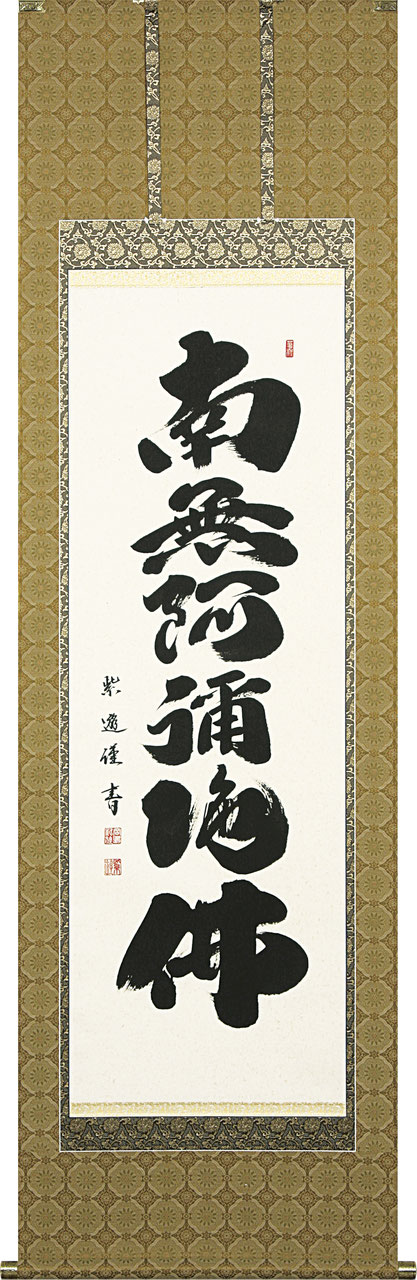 南無阿彌陀佛
紫遊徑書